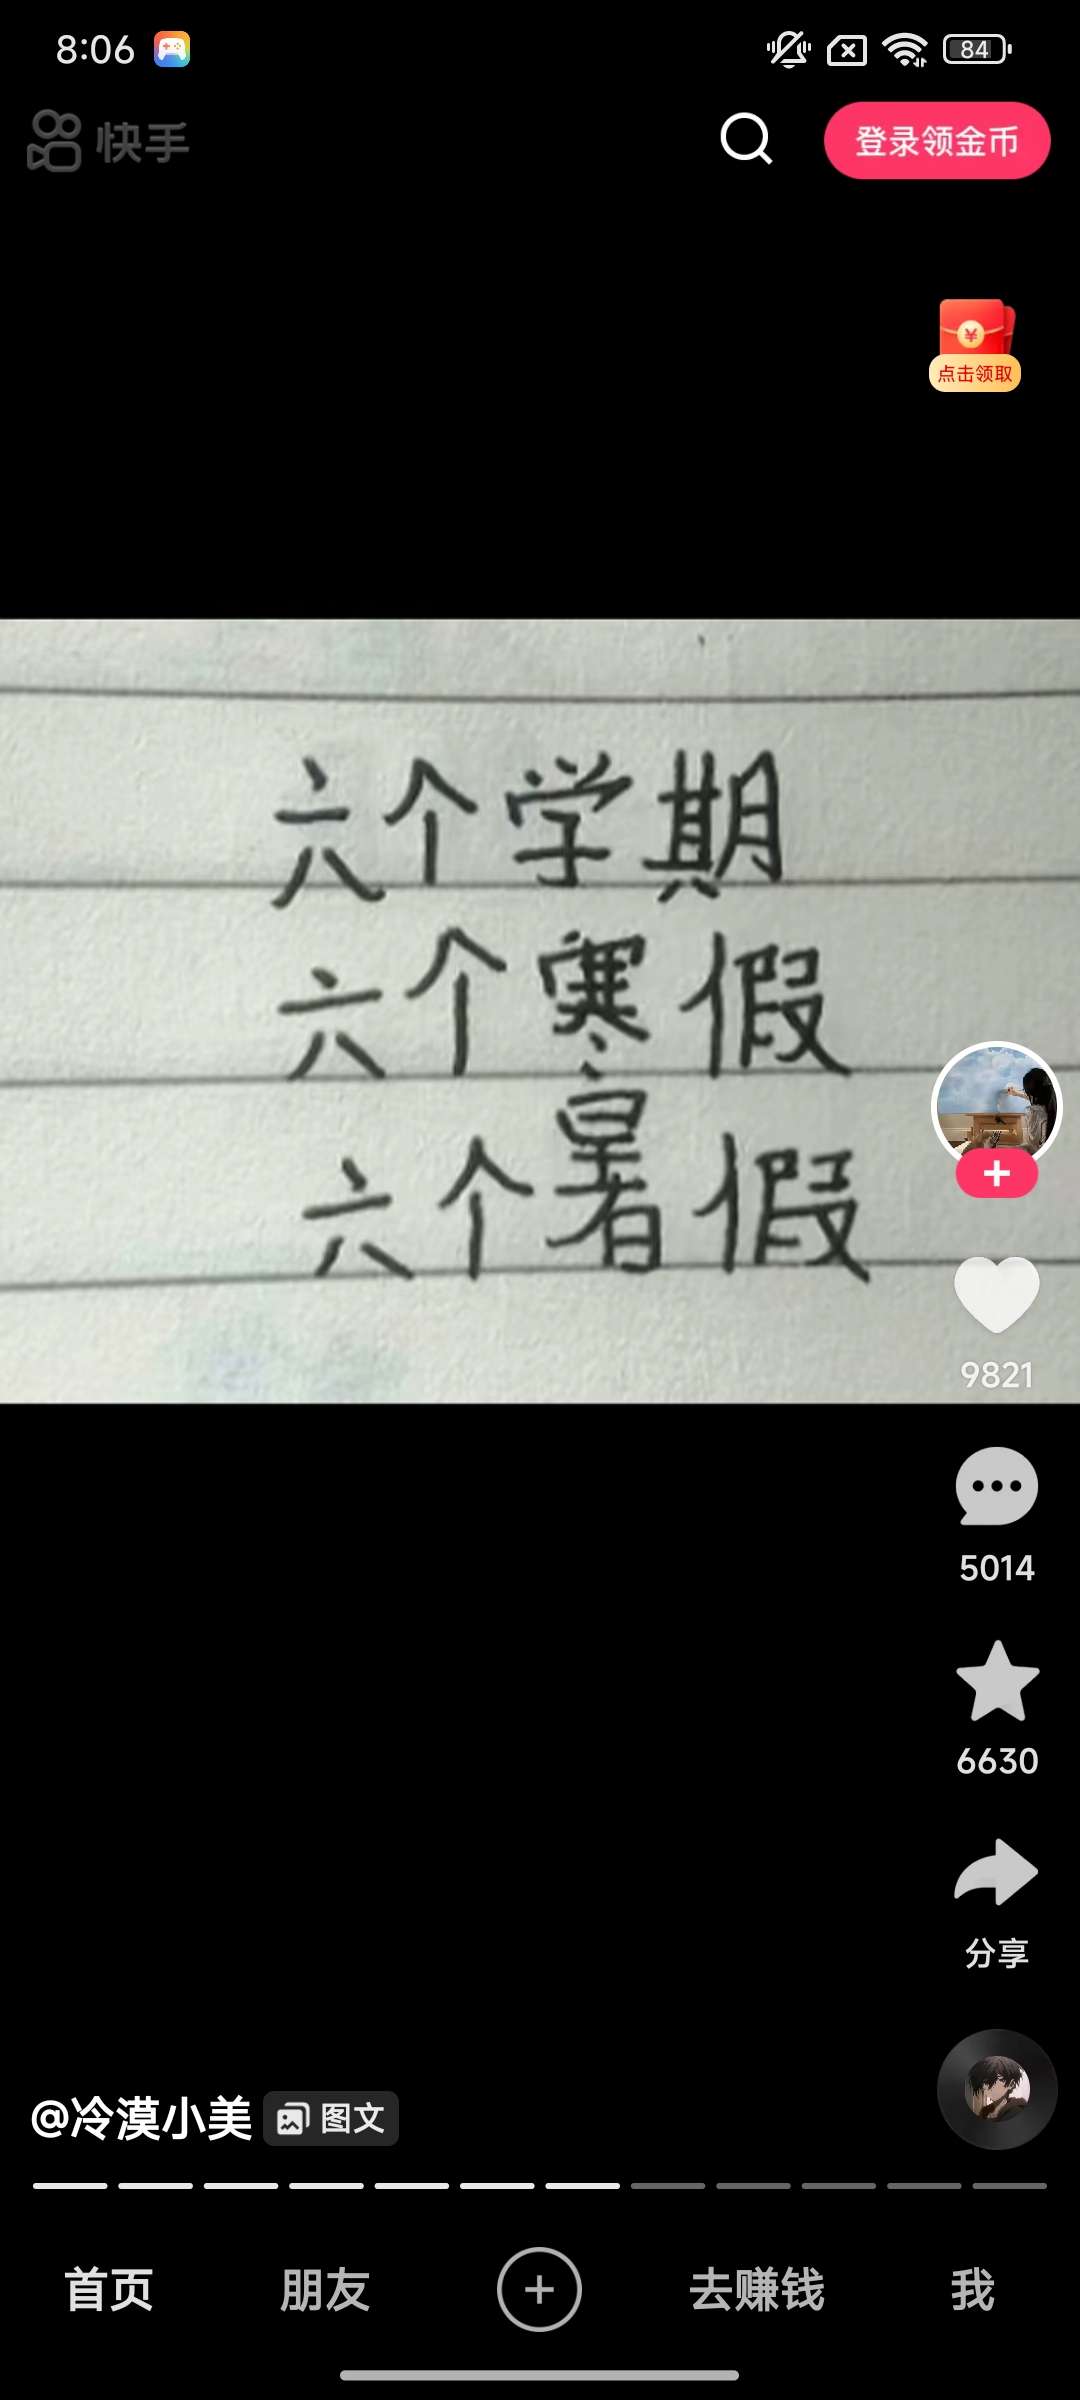 8:06
84
快手
登录领金币
点击领取
六个学期
六个寒假
六个暑假
9821
5014
6630
分享
@冷漠小美 图文
首页 朋友 去赚钱 我